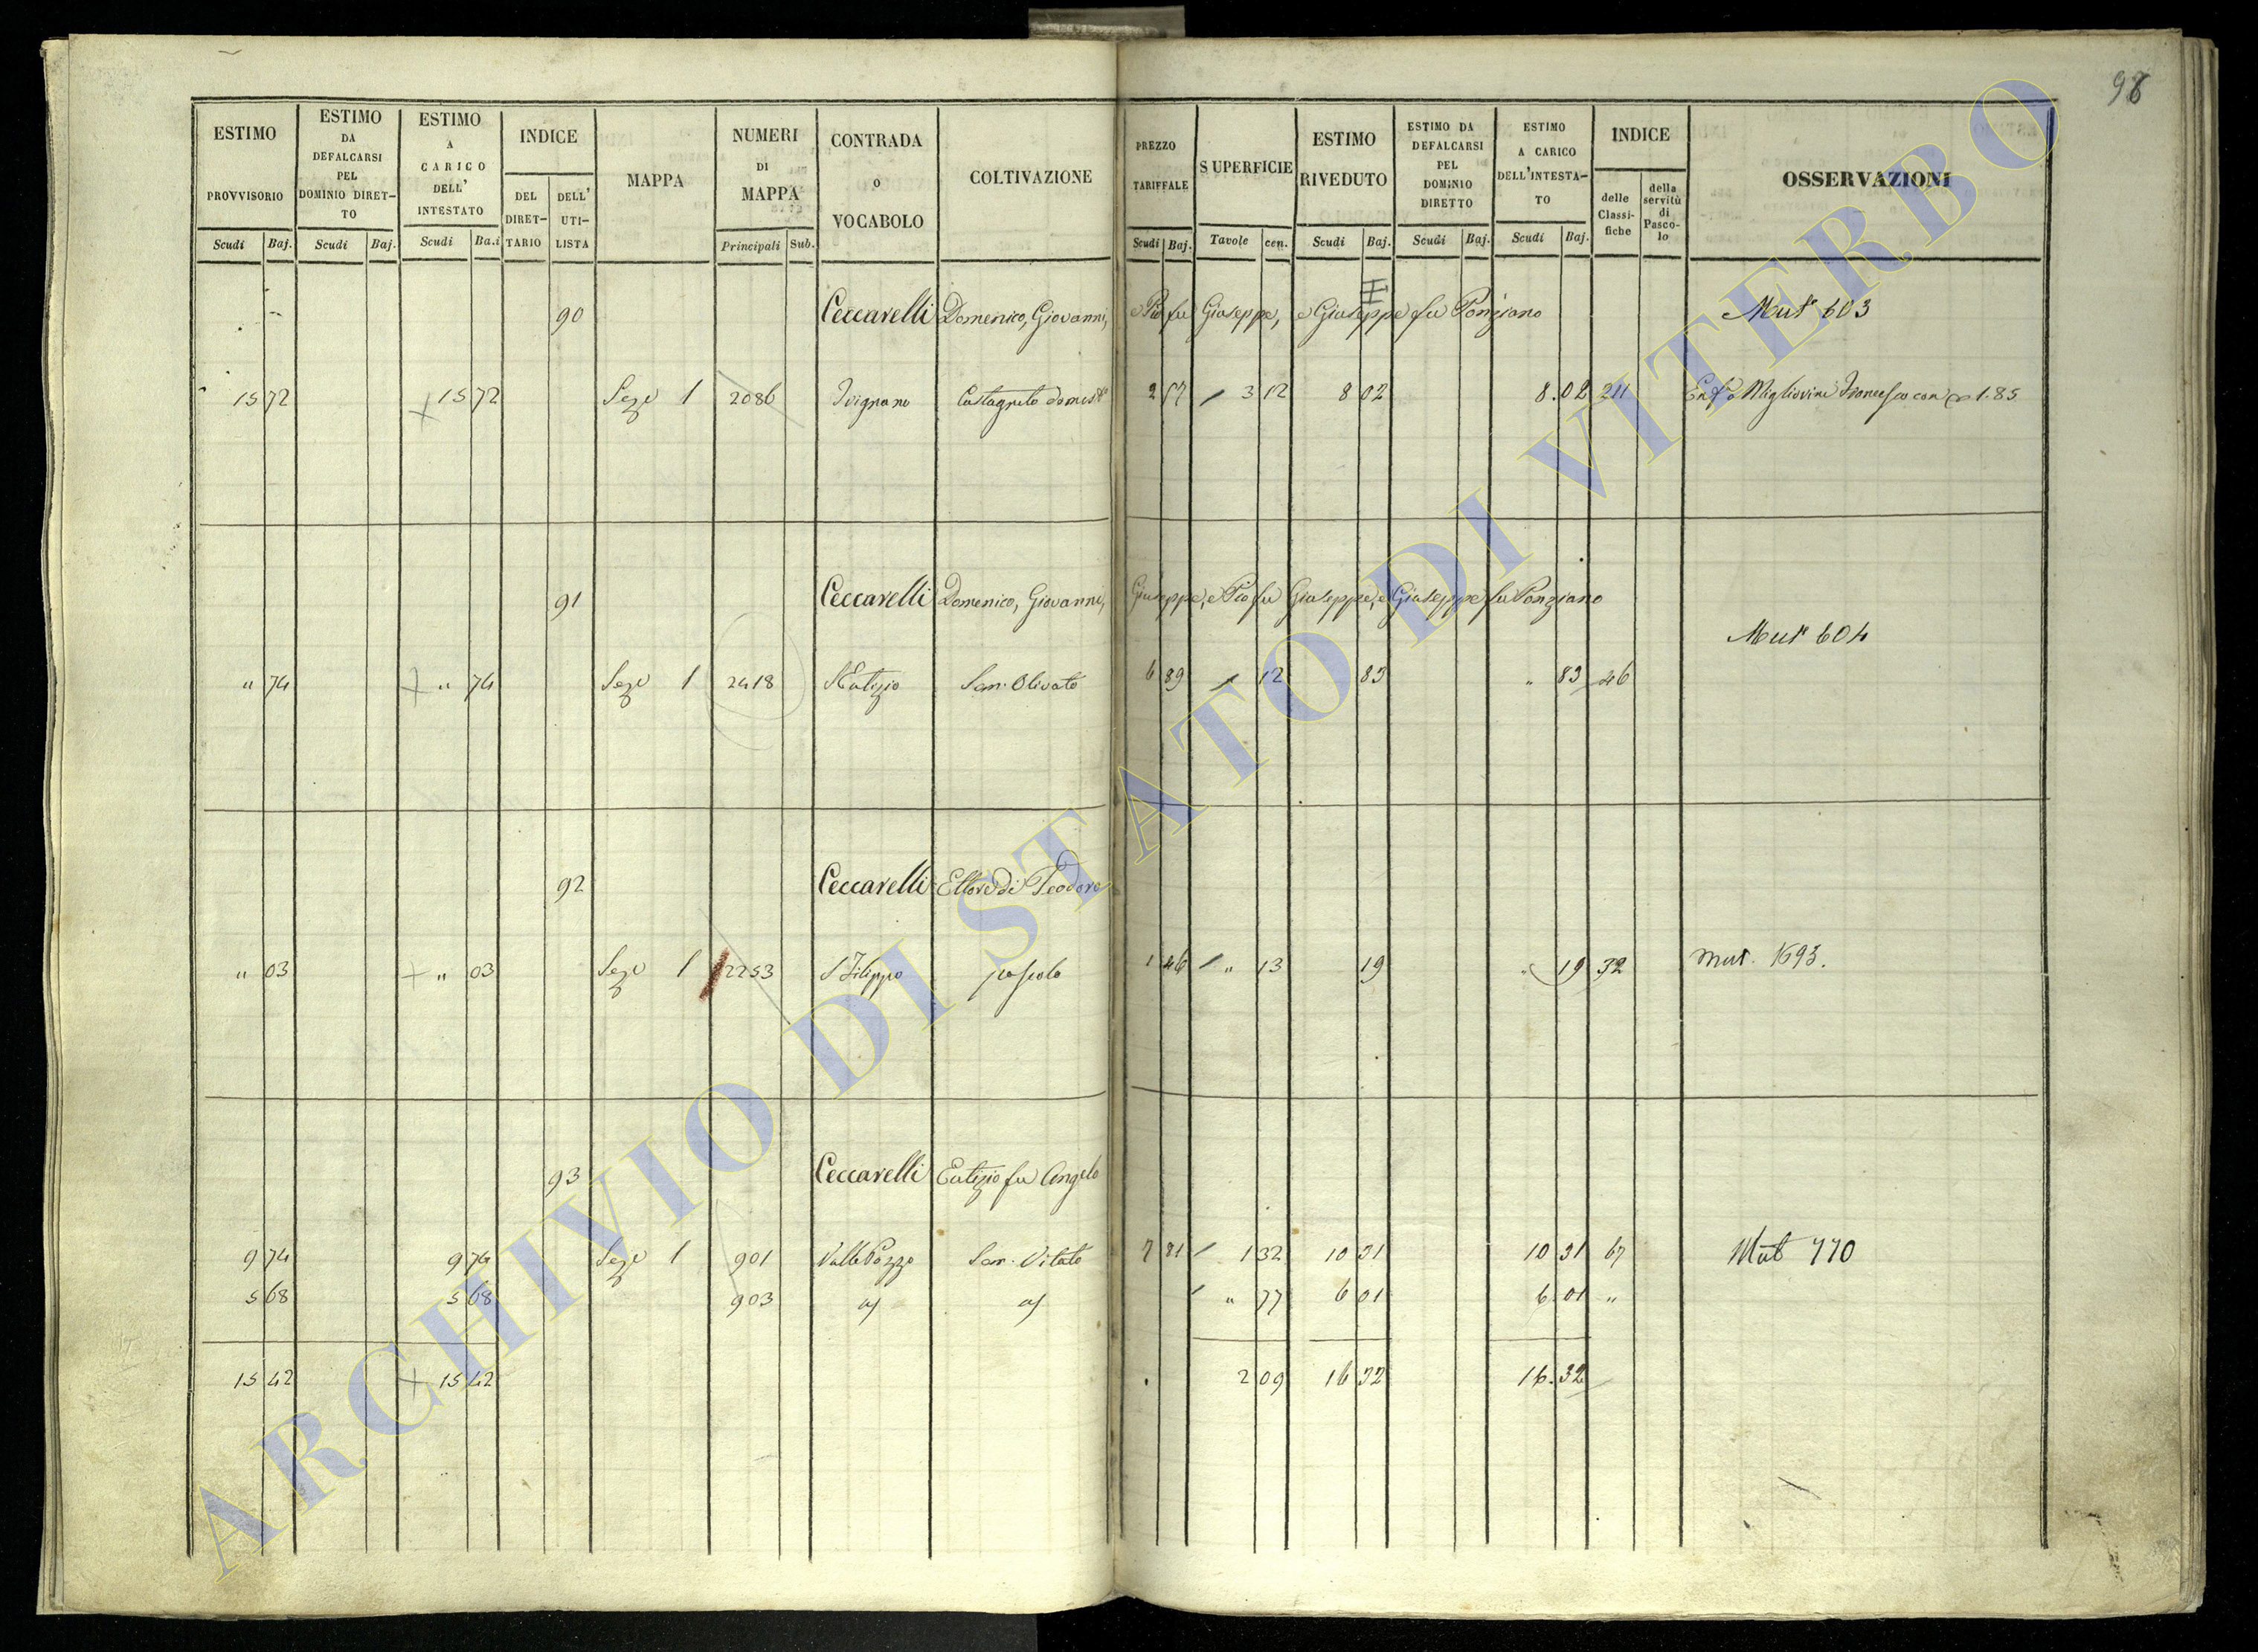 98
ESTIMO PROVVISORIO Scudi Baj.
ESTIMO DA DEFALCARSI PEL DOMINIO DIRET-TO Scudi Baj.
ESTIMO A CARICO DELL' INTESTATO Scudi Ba.i
INDICE DEL DIRET-TARIO DELL' UTI-LISTA
MAPPA
NUMERI DI MAPPA Principali Sub.
CONTRADA O VOCABOLO
COLTIVAZIONE
PREZZO TARIFFALE Scudi Baj.
SUPERFICIE Tavole cen.
ESTIMO RIVEDUTO Scudi Baj.
ESTIMO DA DEFALCARSI PEL DOMINIO DIRETTO Scudi Baj.
ESTIMO A CARICO DELL'INTESTA-TO Scudi Baj.
INDICE delle Classi-fiche della servitù di Pasco-lo
OSSERVAZIONI
90 Ceccarelli Domenico, Giovanni, e Pio fu Giuseppe, e Giuseppe fu Ponziano Mut 603
15 72 15 72 Seze 1 2086 Ivignano Castagneto domest 2 57 3 12 8 02 8.02 211 Migliorini Francesco con 1.85
91 Ceccarelli Domenico, Giovanni, Giuseppe, e Pio fu Giuseppe, e Giuseppe fu Ponziano
Mut 604
" 74 " 74 Seze 1 2418 S Eutizio Sem. Olivato 6 89 12 83 " 83 46
92 Ceccarelli Ettore di Teodoro
" 03 " 03 Seze 1 2253 S Filippo pascolo 1 46 " 13 19 " 19 32 Mut. 1693.
93 Ceccarelli Eutizio fu Angelo
9 74 9 74 Seze 1 901 Valle Pozzo Sem. Vitato 7 81 1 32 10 31 10 31 67 Mut 770
5 68 5 68 903 " 77 6 01 6.01 "
15 42 15 42 2 09 16 32 16.32
ARCHIVIO DI STATO DI VITERBO